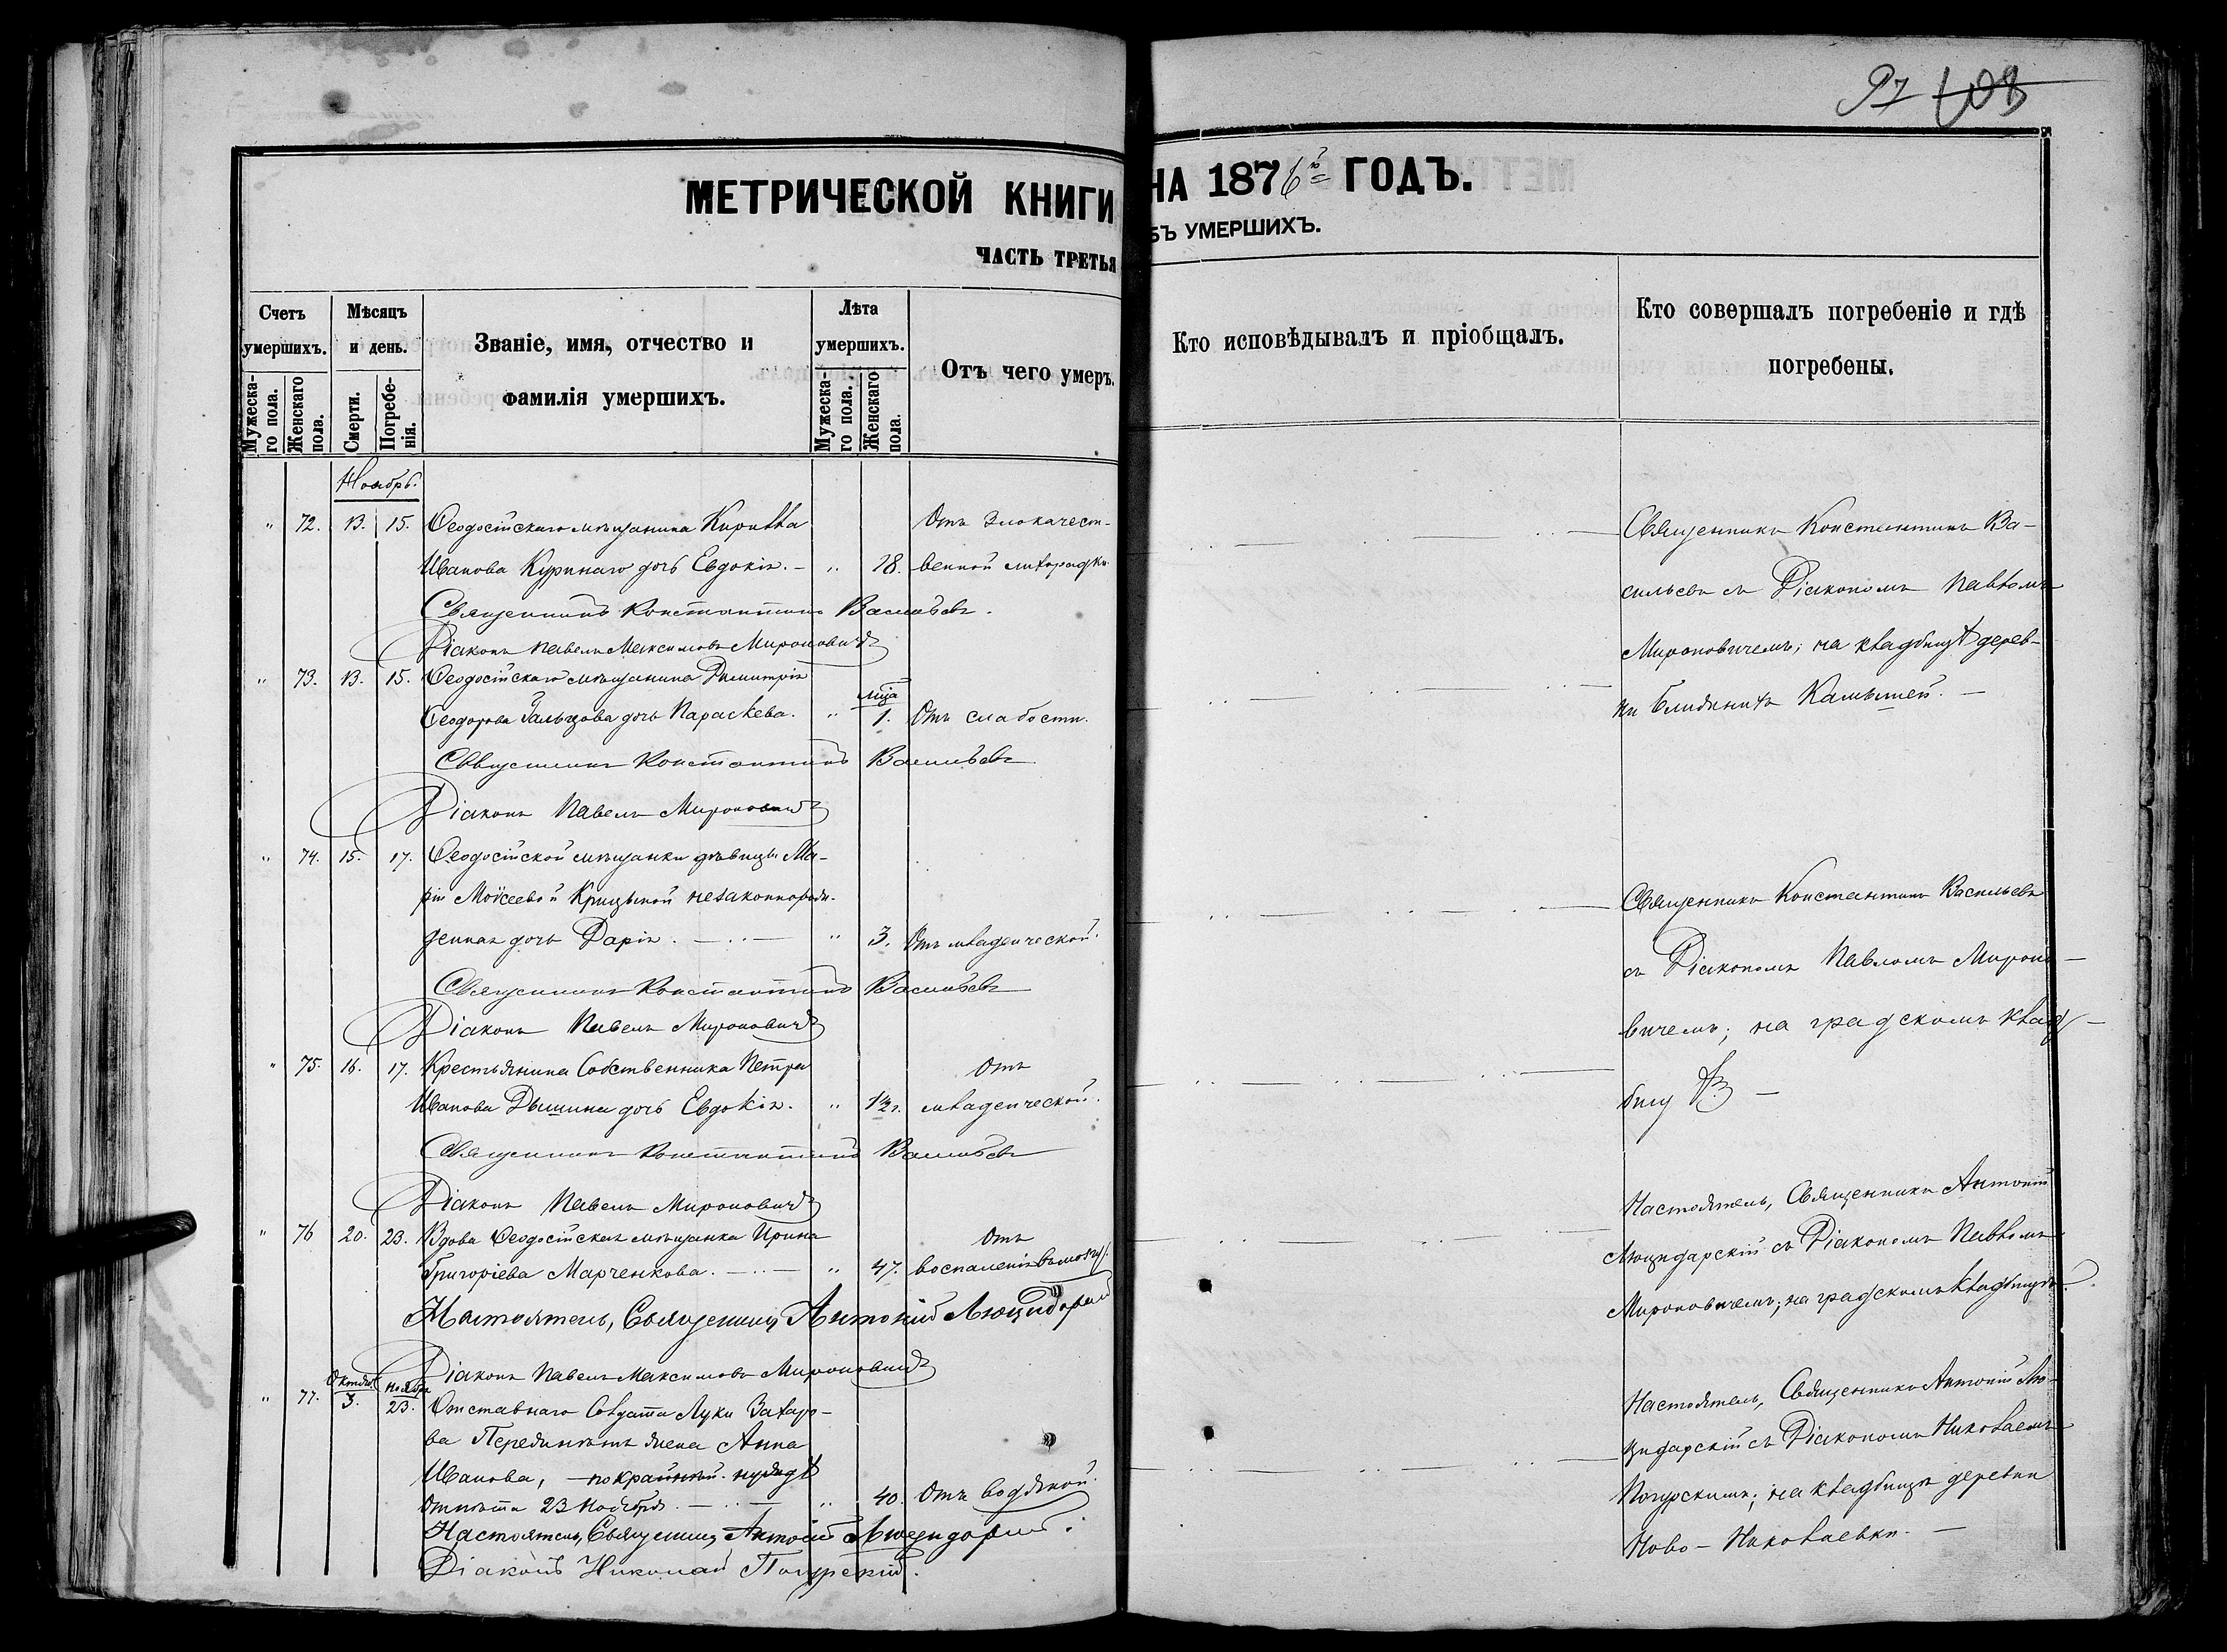 97 103
МЕТРИЧЕСКОЙ КНИГИ НА 1876й ГОДЪ.
ЧАСТЬ ТРЕТЬЯ БЪ УМЕРШИХЪ.
Счетъ умершихъ.
Мужеска-го пола.
Женскаго пола.
Мѣсяцъ и день.
Смерти.
Погребе-нія.
Званіе, имя, отчество и фамилія умершихъ.
Лѣта умершихъ.
Мужеска-го пола.
Женскаго пола.
Отъ чего умеръ.
Кто исповѣдывалъ и пріобщалъ.
Кто совершалъ погребеніе и гдѣ погребены.
Ноябрь.
" 72. 13. 15. Ѳеодосійскаго мѣщанина Кирилла Отъ злокачест-
Иванова Куринаго дочь Евдокія. - " 18. венной лихорадки
Священникъ Константинъ Васильевъ.
Діаконъ Павелъ Максимовъ Мироновичъ
" 73. 13. 15. Ѳеодосійскаго мѣщанина Димитрія
Ѳеодорова Гальцова дочь Параскева. " мца 1. Отъ слабости.
Священникъ Константинъ Васильевъ
Діаконъ Павелъ Мироновичъ
" 74. 15. 17. Ѳеодосійской мѣщанки дѣвицы Ма-
ріи Моѵсеевой Крицыной незаконнорож-
денная дочь Дарія. " 3. Отъ младенческой.
Священникъ Константинъ Васильевъ
Діаконъ Павелъ Мироновичъ
" 75. 16. 17. Крестьянина Собственника Петра Отъ
Иванова Дышина дочь Евдокія. " 1½ г. младенческой.
Священникъ Константинъ Васильевъ
Діаконъ Павелъ Мироновичъ
" 76 20. 23. Вдова Ѳеодосійская мѣщанка Ирина Отъ
Григоріева Марченкова. " 47. воспаленія
Настоятель, Священникъ Антоній Люцидарскій
Діаконъ Павелъ Максимовъ Мироновичъ
" 77. Октября 3. Ноября 23. Отставнаго Солдата Луки Захаро-
ва жена Анна
Иванова, - по крайней нуждѣ
отпѣта 23 Ноября. " 40. Отъ водяной.
Настоятель, Священникъ Антоній Люцидарскій.
Діаконъ Николай Погурскій.
Священникъ Константинъ Ва-
сильевъ съ Діакономъ Павломъ
Мироновичемъ; на кладбищѣ дерев-
ни Ближнихъ Камышей. -
Священникъ Константинъ Васильевъ
съ Діакономъ Павломъ Мироно-
вичемъ; на градскомъ клад-
бищѣ -
Настоятель, Священникъ Антоній
Люцидарскій съ Діакономъ Павломъ
Мироновичемъ; на градскомъ кладбищѣ.
Настоятель, Священникъ Антоній Лю-
цидарскій съ Діакономъ Николаемъ
Погурскимъ; на кладбищѣ деревни
Ново-Николаевки. -